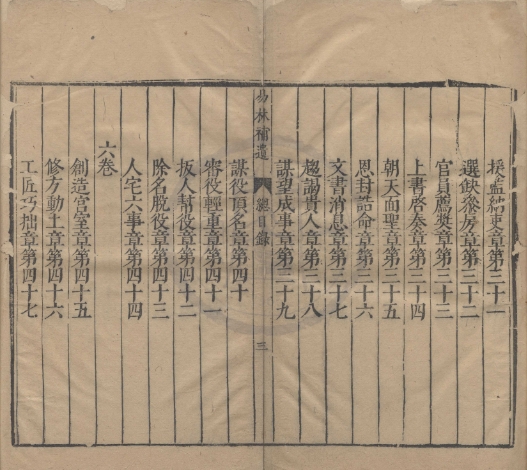 援監納粟章第三十一
選缺參房章第三十二
官員薦獎章第三十三
上書啓奏章第三十四
朝天面聖章第三十五
恩封誥命章第三十六
文書消息章第三十七
趨謁貴人章第三十八
謀望成事章第三十九
易林補遺
總目錄
三
謀役頂名章第四十
審役輕重章第四十一
扳人幇役章第四十二
除名脫役章第四十三
人宅六事章第四十四
六卷
創造宮室章第四十五
修方動土章第四十六
工匠巧拙章第四十七